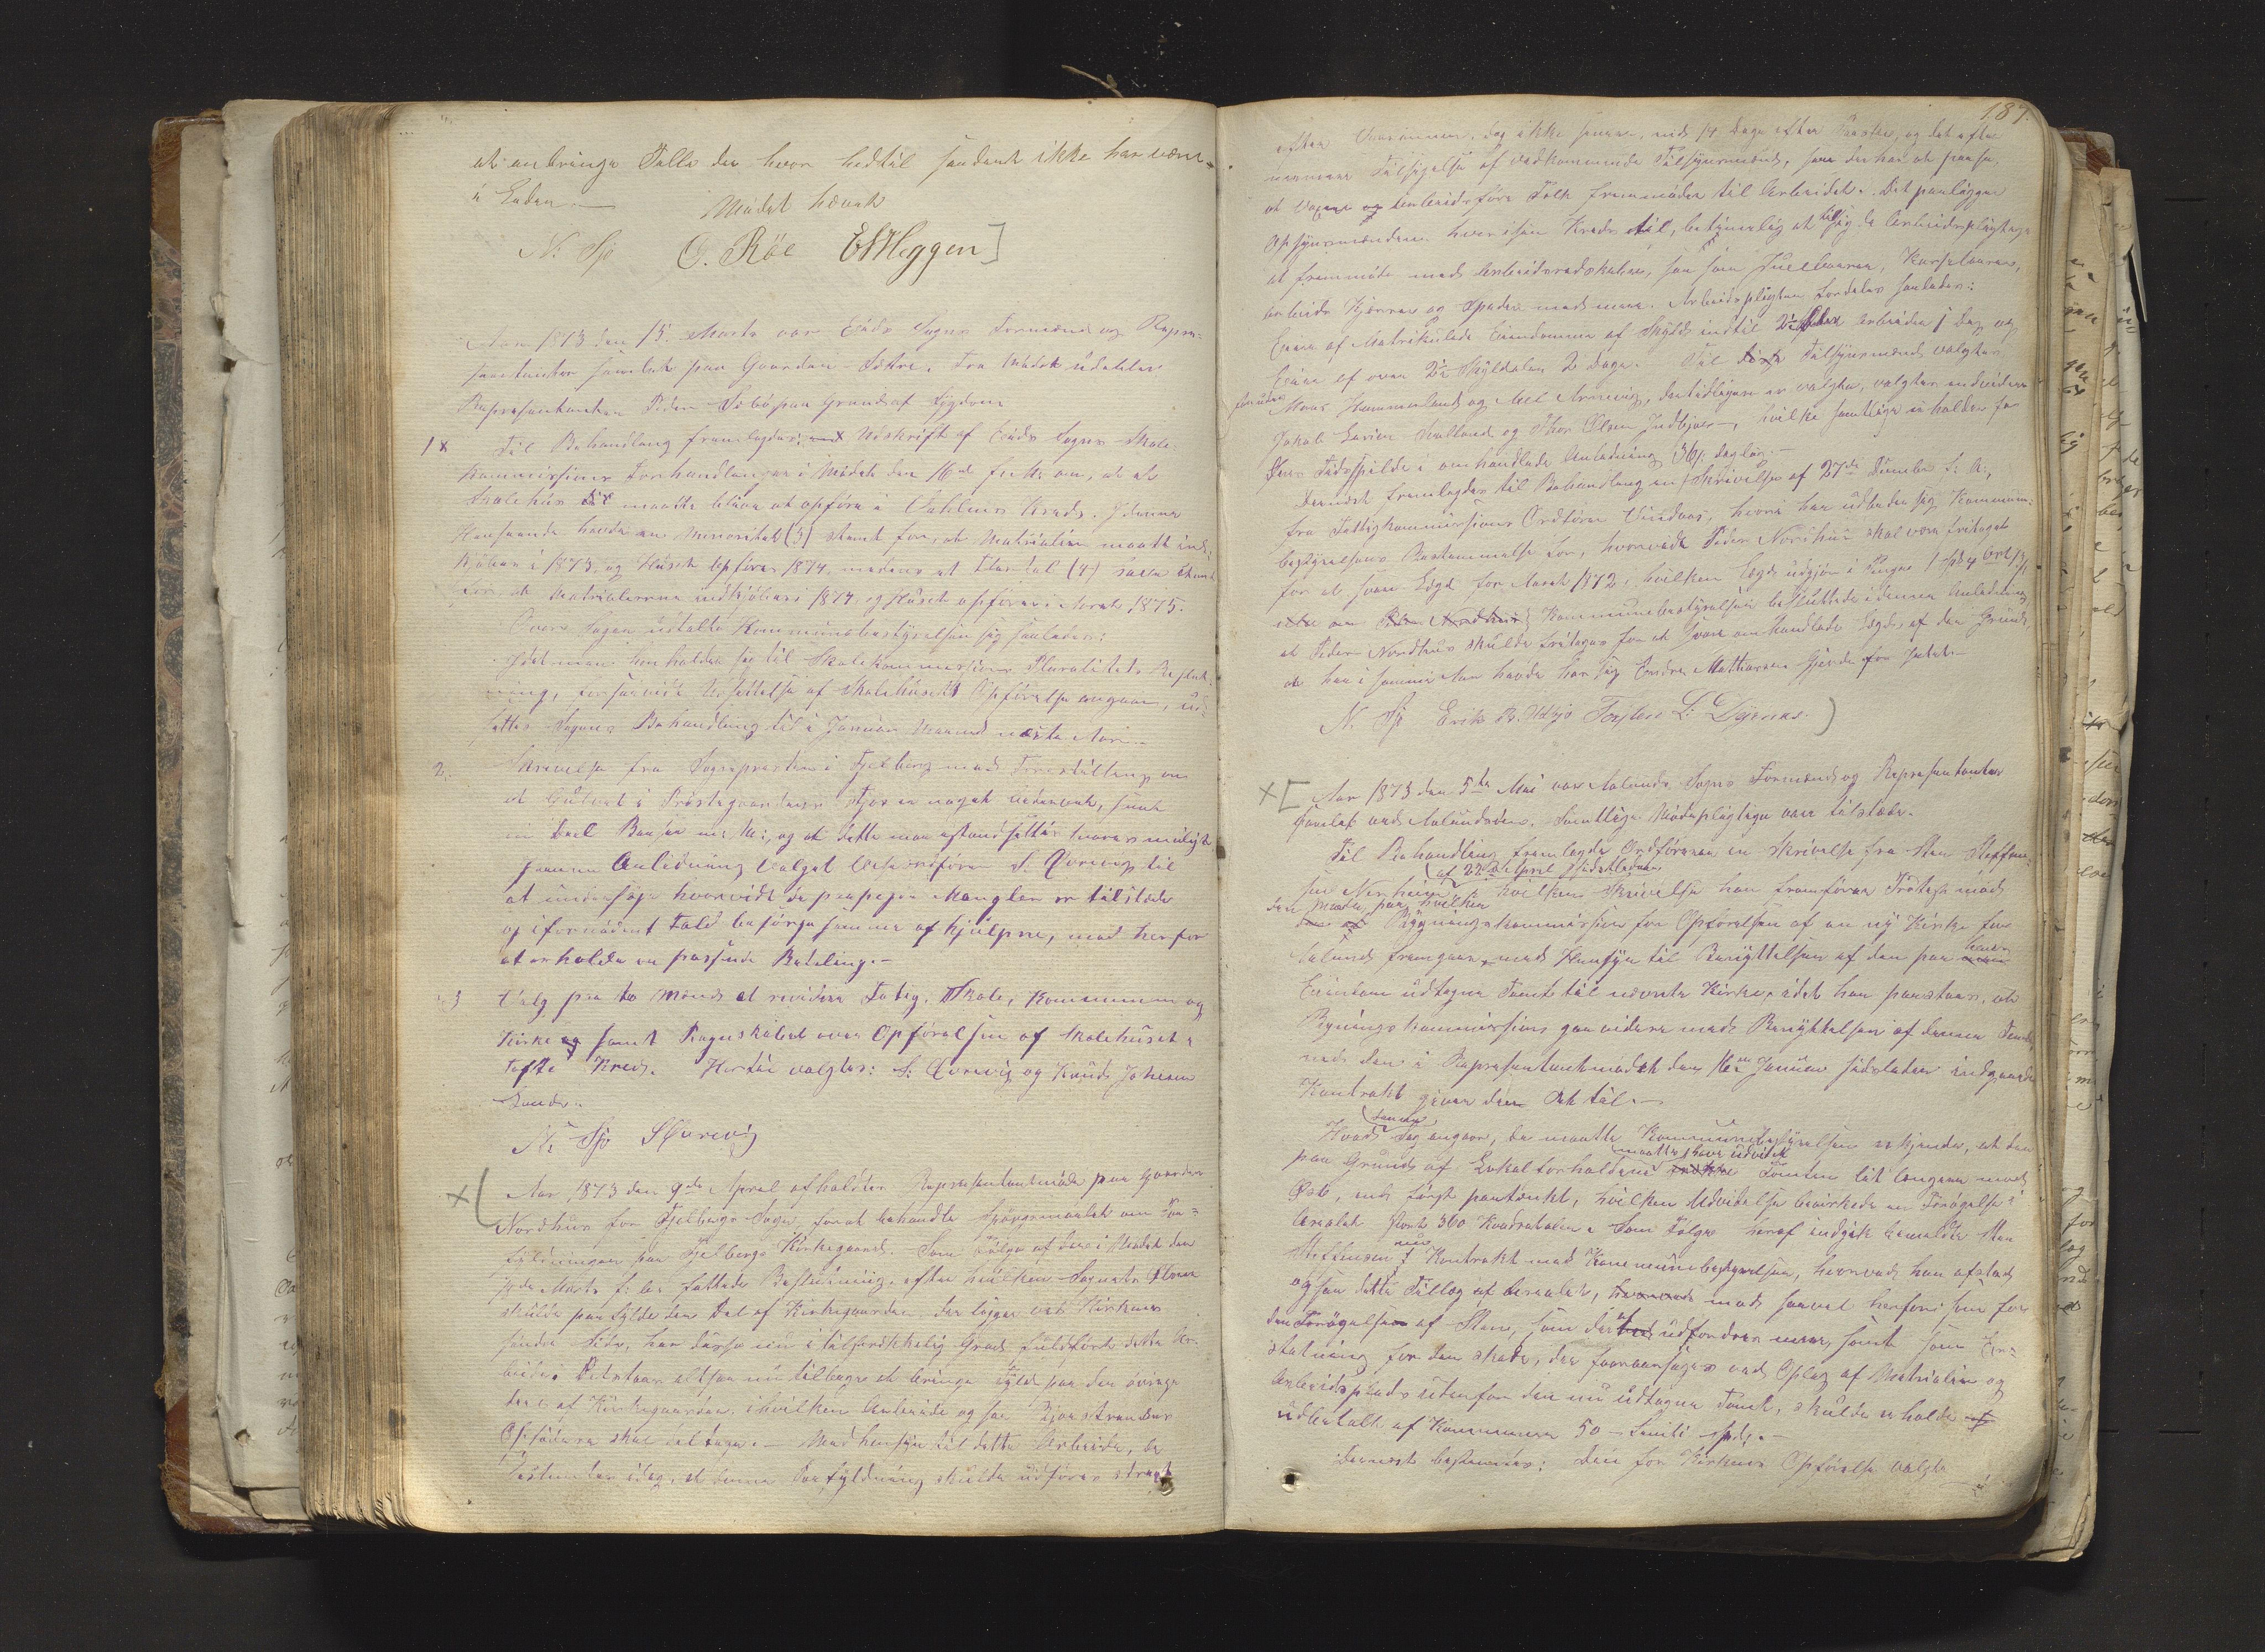 at anbringe Telle der hvor hedtil saadant ikke har været
i Enden.— Mødet hævet
N. Sjo O. Röe EHHeggen]
Aar 1873 den 15. Marts var Eids Sogns Formænd og Repræ-
sentanter samlet paa Gaarden Sætre. Fra Mødet udeblev
Repræsentanten Peder Sæbø paa Grund af Sygdom
1 x Til Behandling fremlagdes: Udskrift af Eids Sogns Skole-
kommissions Forhandlinger i Mødet den 16de f: M: om, at et
Skolehus maatte blive at opføre i Kreds. I denne
Henseende havde en Minoritet (3) stemt for, at Matrialier maatte ind-
kjøbes i 1873, og Huset opføres 1874, medens et Flertal (4) havde stemt
for, at Matrialierne indkjøbes i 1874, og Huset opføres i Aaret 1875.
Over Sagen udtalte Kommunebestyrelsen sig saaledes:
Idet man henholder sig til Skolekommissions Pluralitets Beslut-
ning, forsaavidt Udsættelse af Skolehusets Opførelse angaar, ud-
sættes Sagens Behandling til i Januar Maaned næste Aar.—
2. Skrivelse fra Sognepresten i Fjelberg med Forestilling om
at Gulvet i Præstegaardens Fjøs er noget bedærvet, samt
en Deel Baaser m: M:, og at dette maa istandsættes snarest muligt
I denne Anledning valgtes Viseordfører S. Qvrevig til
at undersøge hvorvidt de paapegede Mangler er tilstede
og i fornødent Fald besørge samme afhjulpne, mod herfor
at erholde en passende Betaling.—
3 Valg paa to Mænd at revidere Fattig, Skole, Kommune og
Kirke samt Regnskabet over Opførelsen af Skolehuset i
Tofte Kreds. Hertil valgtes: S. Qvrevig og Knud Johnsen
Sunde.
N. Sjo S Qvrevig
x( Aar 1873 den 9de April afholdtes Repræsentantmøde paa Gaarden
Nordhus for Fjelbergs Sogn, for at behandle Spørgsmaalet om Paa-
fyldningen paa Fjelbergs Kirkegaard. Som Følge af den i Mødet den
Marts f: A: fattede Beslutning, efter hvilken Sognets
skulde paafylde den Del af Kirkegaarden der ligger ved Kirkens
søndre Side, har disse nu i tilstrækkelig Grad fuldført dette Ar-
beide. Det staar altsaa nu tilbage at bringe Fyld paa den øvrige
Del af Kirkegaarden, i hvilken Arbeide og saa
Opsidere skal deltage.— Med Hensyn til dette Arbeide, be-
stemtes idag, at denne Paafyldning skulde udføres strax
187.
efter Vaaraannen, dog ikke senere, end 14 Dage efter Paaske, og det efter
nærmere Tilsigelse af vedkommende Tilsynsmænd, som der har at paase,
at voxne og arbeidsføre Folk fremmøder til Arbeidet. Det paalægges
Opsynsmændene hver i sin Kreds, betimelig at tilsige de Arbeidspligtige
at fremmøte med Arbeidsredskaber, saa som Hjulbaarer, Kasebaarer,
arbeids Kjærrer og Spader med mere. Arbeidspligten fordeles saaledes:
Eiere af Matrikulerede Eiendomme af Skyld indtil 2½ Daler arbeider 1 Dag og
Eiere af over 2½ Skylddaler 2 Dage. Til Tilsynsmænd valgtes
foruden Mons Hammerland og Niel Arnevig, der tidligere er valgte, valgtes endvidere
Jakob Larsen Svalland og Thor Olsen Indbjoer, hvilke samtlige erholder for
deres Tidsspilde i omhandlede Anledning 36 s: daglig.—
Dernæst fremlagdes til Behandling en Skrivelse af 27de December f: A:,
fra Fattigkommissions Ordfører Vindaas, hvori han udbeder sig Kommune-
bestyrelsens Bestemmelse for, hvorvidt Peder Nordhus skal være fritaget
for at svare Lægd for Aaret 1872, hvilken Lægd udgjør i Penge 1 Spd 4 Ort
Kommunebestyrelsen besluttede i denne Anledning,
at Peder Nordhus skulde fritages for at svare omhandlede Lægd, af den Grund,
at han i samme Aar havde hos sig Endre Mathiesen Gjerde for Intet.—
N. Sjo Erik B. Utsjo Torjlev L. Dyrnes.)
x[ Aar 1873 den 5te Mai var Aalunds Sogns Formænd og Repræsentanter
samlet ved Aalundøen. Samtlige Mødepligtige vare tilstede.
Til Behandling fremlagde Ordføreren en Skrivelse fra Sten Steffen-
sen Nerheim, (af 22de April sidstleden) hvilken Skrivelse han fremfører Protest mod
den Maade, paa hvilken Bygningskommission for Opførelsen af en ny Kirke for
Aalund fremgaar, med Hensyn til Benyttelsen af den paa hans
Eiendom udtagne Tomt til nævnte Kirke, idet han paastaar, at
Bygningskommission gaar videre med Benyttelsen af denne Tomt,
end den i Repræsentantmødet den 16de Januar sidstleden indgaaede
Kontrakt giver den Ret til.—
Hvad denne Sag angaar, da maatte Kommunebestyrelsen erkjende, at den
paa Grund af Lokalforholdene maatte have udvidet Tomten lit længere mod
Øst, end først paatænkt, hvilken Udvidelse bevirkede en Forøgelse i
Arealet stort 360 Kvadratalen. Som Følge heraf indgik bemeldte Sten
Steffensen nu i Kontrakt med Kommunebestyrelsen, hvorved han afstod
og saa dette Tillæg af Arealet, mod saavel herfor som for
den Forøgelse af Sten, som dertil udfordres mere, samt som Er-
statning for den Skade, der foraarsages ved Oplag af Matrialier og
Arbeidsplads udenfor den nu udtagne Tomt, skulde erholde
udbetalt af Kommunen 50 — femti Spd.—
Dernæst bestemtes: Den for Kirkens Opførelse valgte